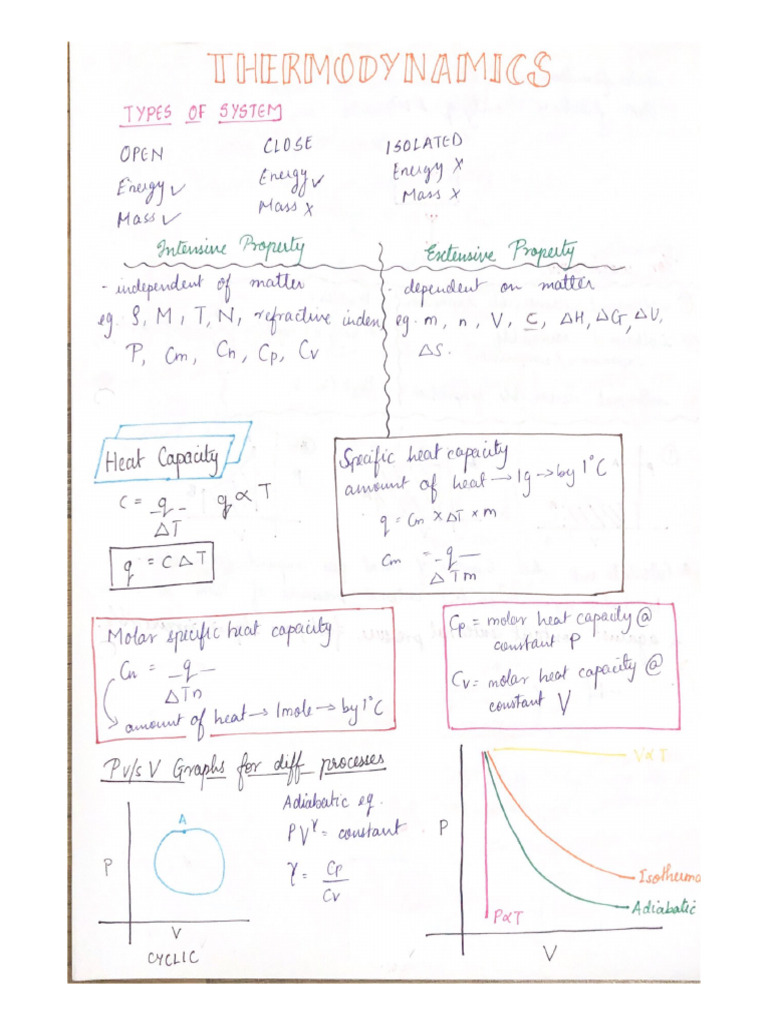 THERMODYNAMICS
TYPES OF SYSTEM
OPEN
Energy ✓
Mass ✓
CLOSE
Energy ✓
Mass ✗
ISOLATED
Energy ✗
Mass ✗
Intensive Property
- independent of matter
eg. S, M, T, N, refractive inden,
P, Cm, Cn, Cp, Cv
Extensive Property
- dependent on matter
eg. m, n, V, C, ΔH, ΔG, ΔU,
ΔS.
Heat Capacity
C = q / ΔT q ∝ T
q = C Δ T
Specific heat capacity
amount of heat → 1g → by 1°C
q = Cm × ΔT × m
Cm = q / ΔTm
Molar specific heat capacity
Cn = q / ΔTn
amount of heat → 1mole → by 1°C
Cp = molar heat capacity @
constant P
Cv = molar heat capacity @
constant V
P v/s V Graphs for diff processes
A
P
V
CYCLIC
Adiabatic eq.
PV^γ = constant
γ = Cp / Cv
P
V∝T
Isotherma
Adiabatic
P∝T
V